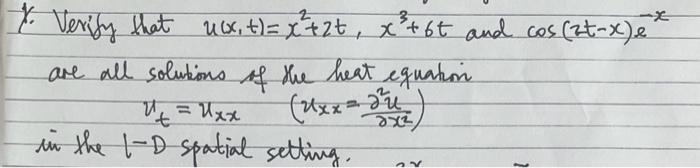 1. Verify that u(x,t)=x²+2t, x³+6t and cos(2t-x)e^-x
are all solutions of the heat equation
u_t = u_xx (u_xx = ∂²u/∂x²)
in the 1-D spatial setting.